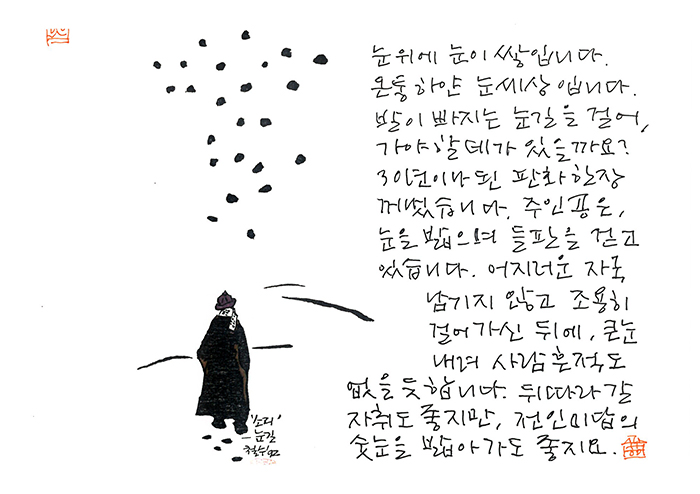 눈위에 눈이 쌓입니다.
온통 하얀 눈세상입니다.
발이 빠지는 눈길을 걸어,
가야할 데가 있을까요?
30년이나 된 판화 한장
꺼냈습니다. 주인공은,
눈을 밟으며 들판을 걷고
있습니다. 어지러운 자국
남기지 않고 조용히
걸어가신 뒤에, 큰눈
내려 사람 흔적도
없을 듯 합니다. 뒤따라갈
자취도 좋지만, 전인미답의
숫눈을 밟아가도 좋지요.
"소리"
- 눈길
철수 92